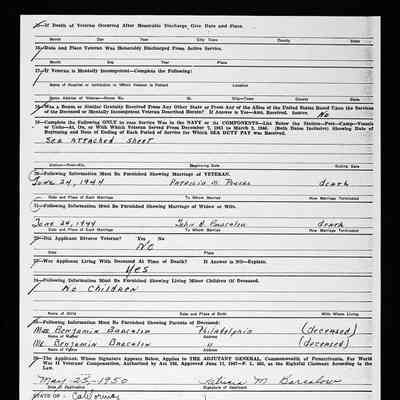 If Death of Veteran Occurred After Honorable Discharge, Give Date and Place.
Month Day Year City Town County State
Date and Place Veteran Was Honorably Discharged From Active Service.
Month Day Year Place
If Veteran is Mentally Incompetent—Complete the Following:
Name of Hospital or Institution in Which Veteran is Patient Location
Name Address of Veteran—House No. St. City—Town County State
Was a Bonus or Similar Gratuity Received From Any Other State or From Any of the Allies of the United States Based Upon the Services
of the Deceased or Mentally Incompetent Veteran Described Herein? If Answer is Yes—Amt. Received. Answer No
Complete the Following ONLY in case Service Was in the NAVY or its COMPONENTS—List Below the Station—Fort—Camp—Vessels
or Units—At, On, or With Which Veteran Served From December 7, 1941 to March 2, 1946. (Both Dates Inclusive) Showing Date of
Beginning and Date of Ending of Each Period of Service for Which SEA DUTY PAY was Received.
See attached sheet
Station—Fort—Etc. Beginning Date Ending Date
Following Information Must Be Furnished Showing Marriage of VETERAN.
June 24, 1944 Patricia M. death
Date and Place of Each Marriage To Whom Married How Marriage Terminated
Following Information Must Be Furnished Showing Marriage of Widow or Wife.
June 24, 1944 John B. Barsalow death
Date and Place of Each Marriage To Whom Married How Marriage Terminated
Did Applicant Divorce Veteran? Yes No
No
Date Place
Was Applicant Living With Deceased At Time of Death? If Answer is NO—Explain.
Yes
Following Information Must Be Furnished Showing Living Minor Children Of Deceased.
No Children
Name of Child Date and Place of Birth With Whom Living
Following Information Must Be Furnished Showing Parents of Deceased:
Mrs Benjamin Barsalow Philadelphia (deceased)
Name of Mother Address
Mr. Benjamin Barsalow " (deceased)
Name of Father Address
The Applicant, Whose Signature Appears Below, Applies to THE ADJUTANT GENERAL, Commonwealth of Pennsylvania, For World
War II Veterans' Compensation, Authorized by Act 455, Approved June 11, 1947—P. L. 565, as the Rightful Claimant According to the
Law.
May 23, 1950 Patricia M. Barsalow
Date of Application Signature of Applicant
STATE OF California